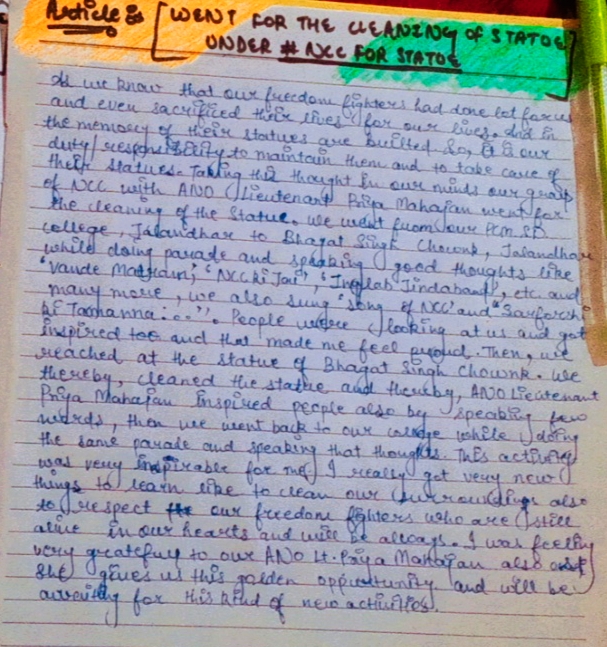 Article :- [WENT FOR THE CLEANING OF STATUE
UNDER # NCC FOR STATUE
As we know that our freedom fighters had done lot for us
and even sacrificed their lives for our lives. And in
the memory of their statues are builted So, it is our
duty/responsibility to maintain them and to take care of
their statues. Taking this thought in our minds our group
of NCC with ANO Lieutenant Priya Mahajan went for
the cleaning of the Statue. We went from our P.C.M. S.D
college, Jalandhar to Bhagat Singh Chownk, Jalandhar
while doing parade and speaking good thoughts like
"Vande Matram", "NCC ki Jai", "Inqlab Jindabaad", etc. and
many more, we also sung "song of NCC" and "Sarforshi
ki Tamhanna...". People were looking at us and got
inspired too and that made me feel proud. Then, we
reached at the statue of Bhagat Singh Chownk. We
thereby, cleaned the statue and thereby, ANO Lieutenant
Priya Mahajan inspired people also by speaking few
words, then we went back to our college while doing
the same parade and speaking that thoughts. This activity
was very inspirable for me. I really got very new
things to learn like to clean our surroundings also
to respect our freedom fighters who are still
alive in our hearts and will be always. I was feeling
very greatefuy to our ANO Lt. Priya Mahajan also
She gives us this golden oppurtunity and will be
for this kind of new activities.